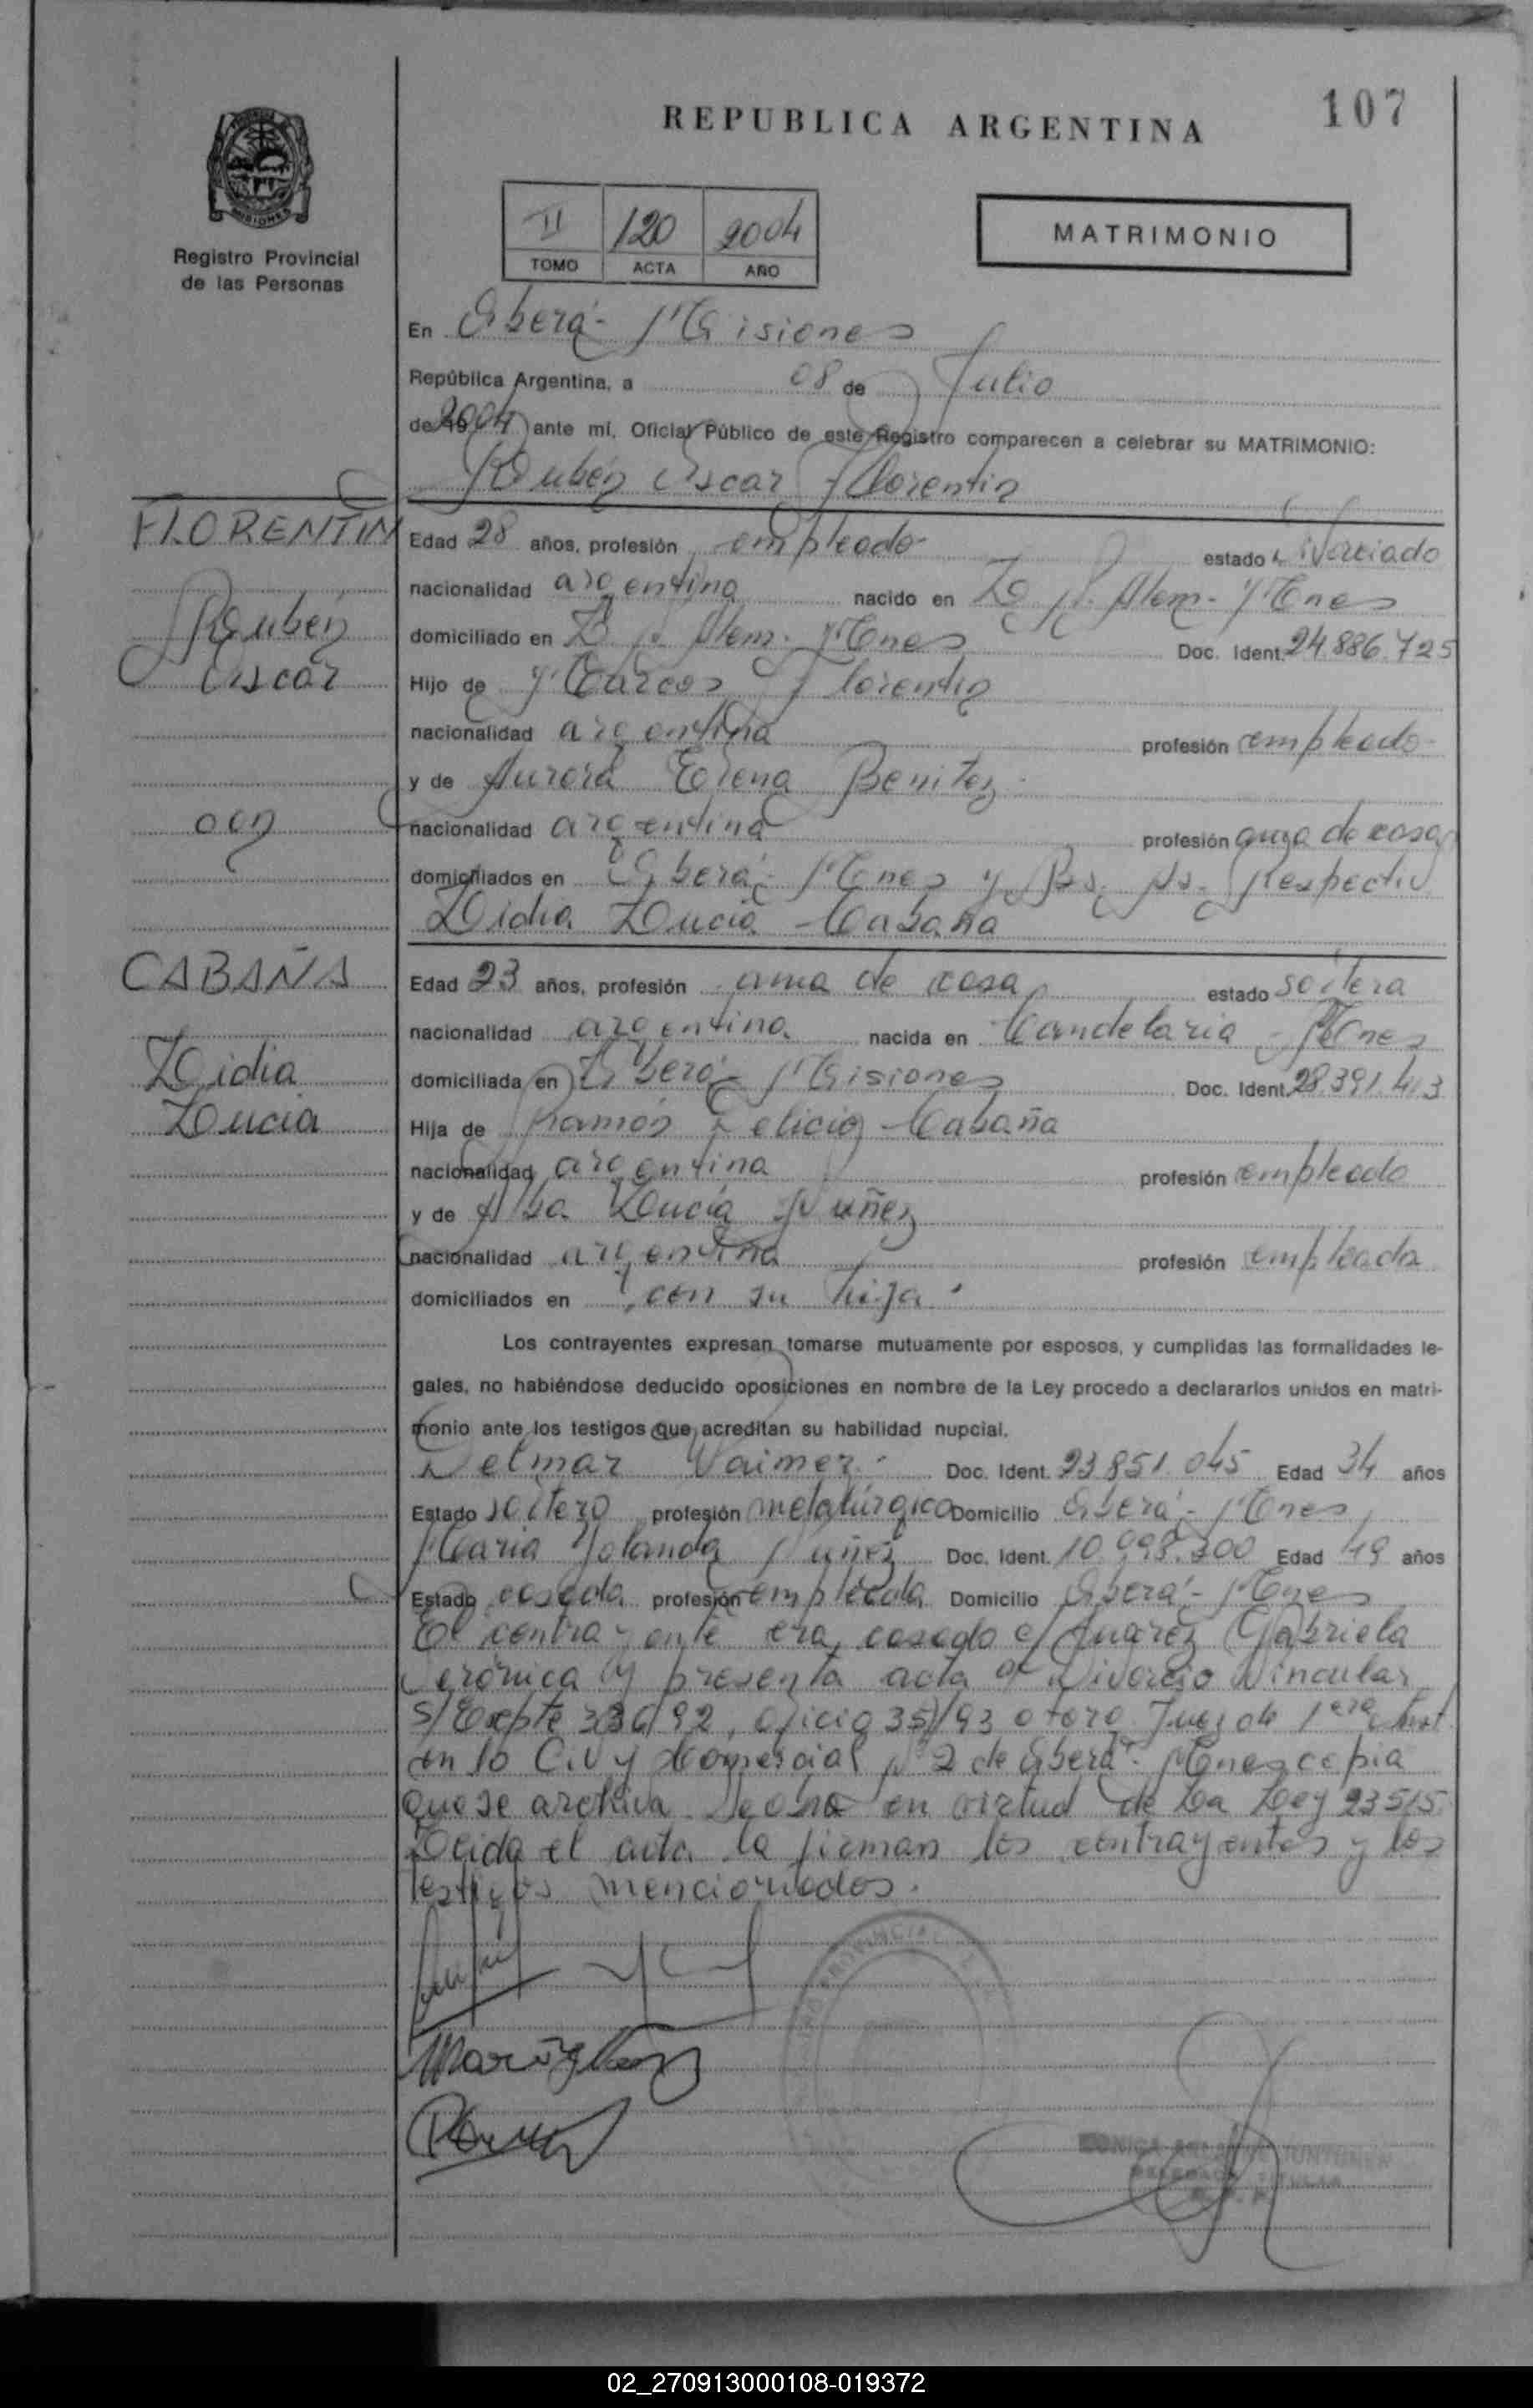 107
REPUBLICA ARGENTINA
MISIONES
Registro Provincial
de las Personas
II 120 2004
TOMO ACTA AÑO
MATRIMONIO
En Oberá - Misiones
República Argentina, a 08 de Julio
de 2004 ante mí, Oficial Público de este Registro comparecen a celebrar su MATRIMONIO:
Rubén Oscar Florentin
FLORENTIN
Rubén
Oscar
con
CABAÑA
Lidia
Lucia
Edad 28 años, profesión empleado estado divorciado
nacionalidad argentina nacido en L. N. Alem - Mnes
domiciliado en L. N. Alem - Mnes Doc. Ident. 24.886.725
Hijo de Marcos Florentin
nacionalidad argentina profesión empleado
y de Aurora Elena Benitez
nacionalidad argentina profesión ama de casa
domiciliados en Oberá - Mnes y Bs. As. Respectiv
Lidia Lucia Cabaña
Edad 23 años, profesión ama de casa estado soltera
nacionalidad argentina nacida en Candelaria - Mnes
domiciliada en Oberá - Misiones Doc. Ident. 28.391.413
Hija de Ramón Felicio Cabaña
nacionalidad argentina profesión empleado
y de Alba Lucía Nuñez
nacionalidad argentina profesión empleada
domiciliados en con su hija
Los contrayentes expresan tomarse mutuamente por esposos, y cumplidas las formalidades le-
gales, no habiéndose deducido oposiciones en nombre de la Ley procedo a declararlos unidos en matri-
monio ante los testigos que acreditan su habilidad nupcial.
Delmar Vaimer Doc. Ident. 23.851.045 Edad 34 años
Estado soltero profesión metalúrgico Domicilio Oberá - Mnes
Maria Yolanda Nuñez Doc. Ident. 10.998.300 Edad 49 años
Estado casada profesión empleada Domicilio Oberá - Mnes
El contrayente era casado c/ Juarez Gabriela
Verónica y presenta acta de Divorcio Vincular
S/Expte 336/92, oficio 35/93 Juez de 1era Inst.
en lo Civ y Comercial Nº 2 de Oberá - Mnes copia
que se archiva en virtud de La Ley 23515
Leída el acta la firman los contrayentes y los
testigos mencionados.
02_270913000108-019372